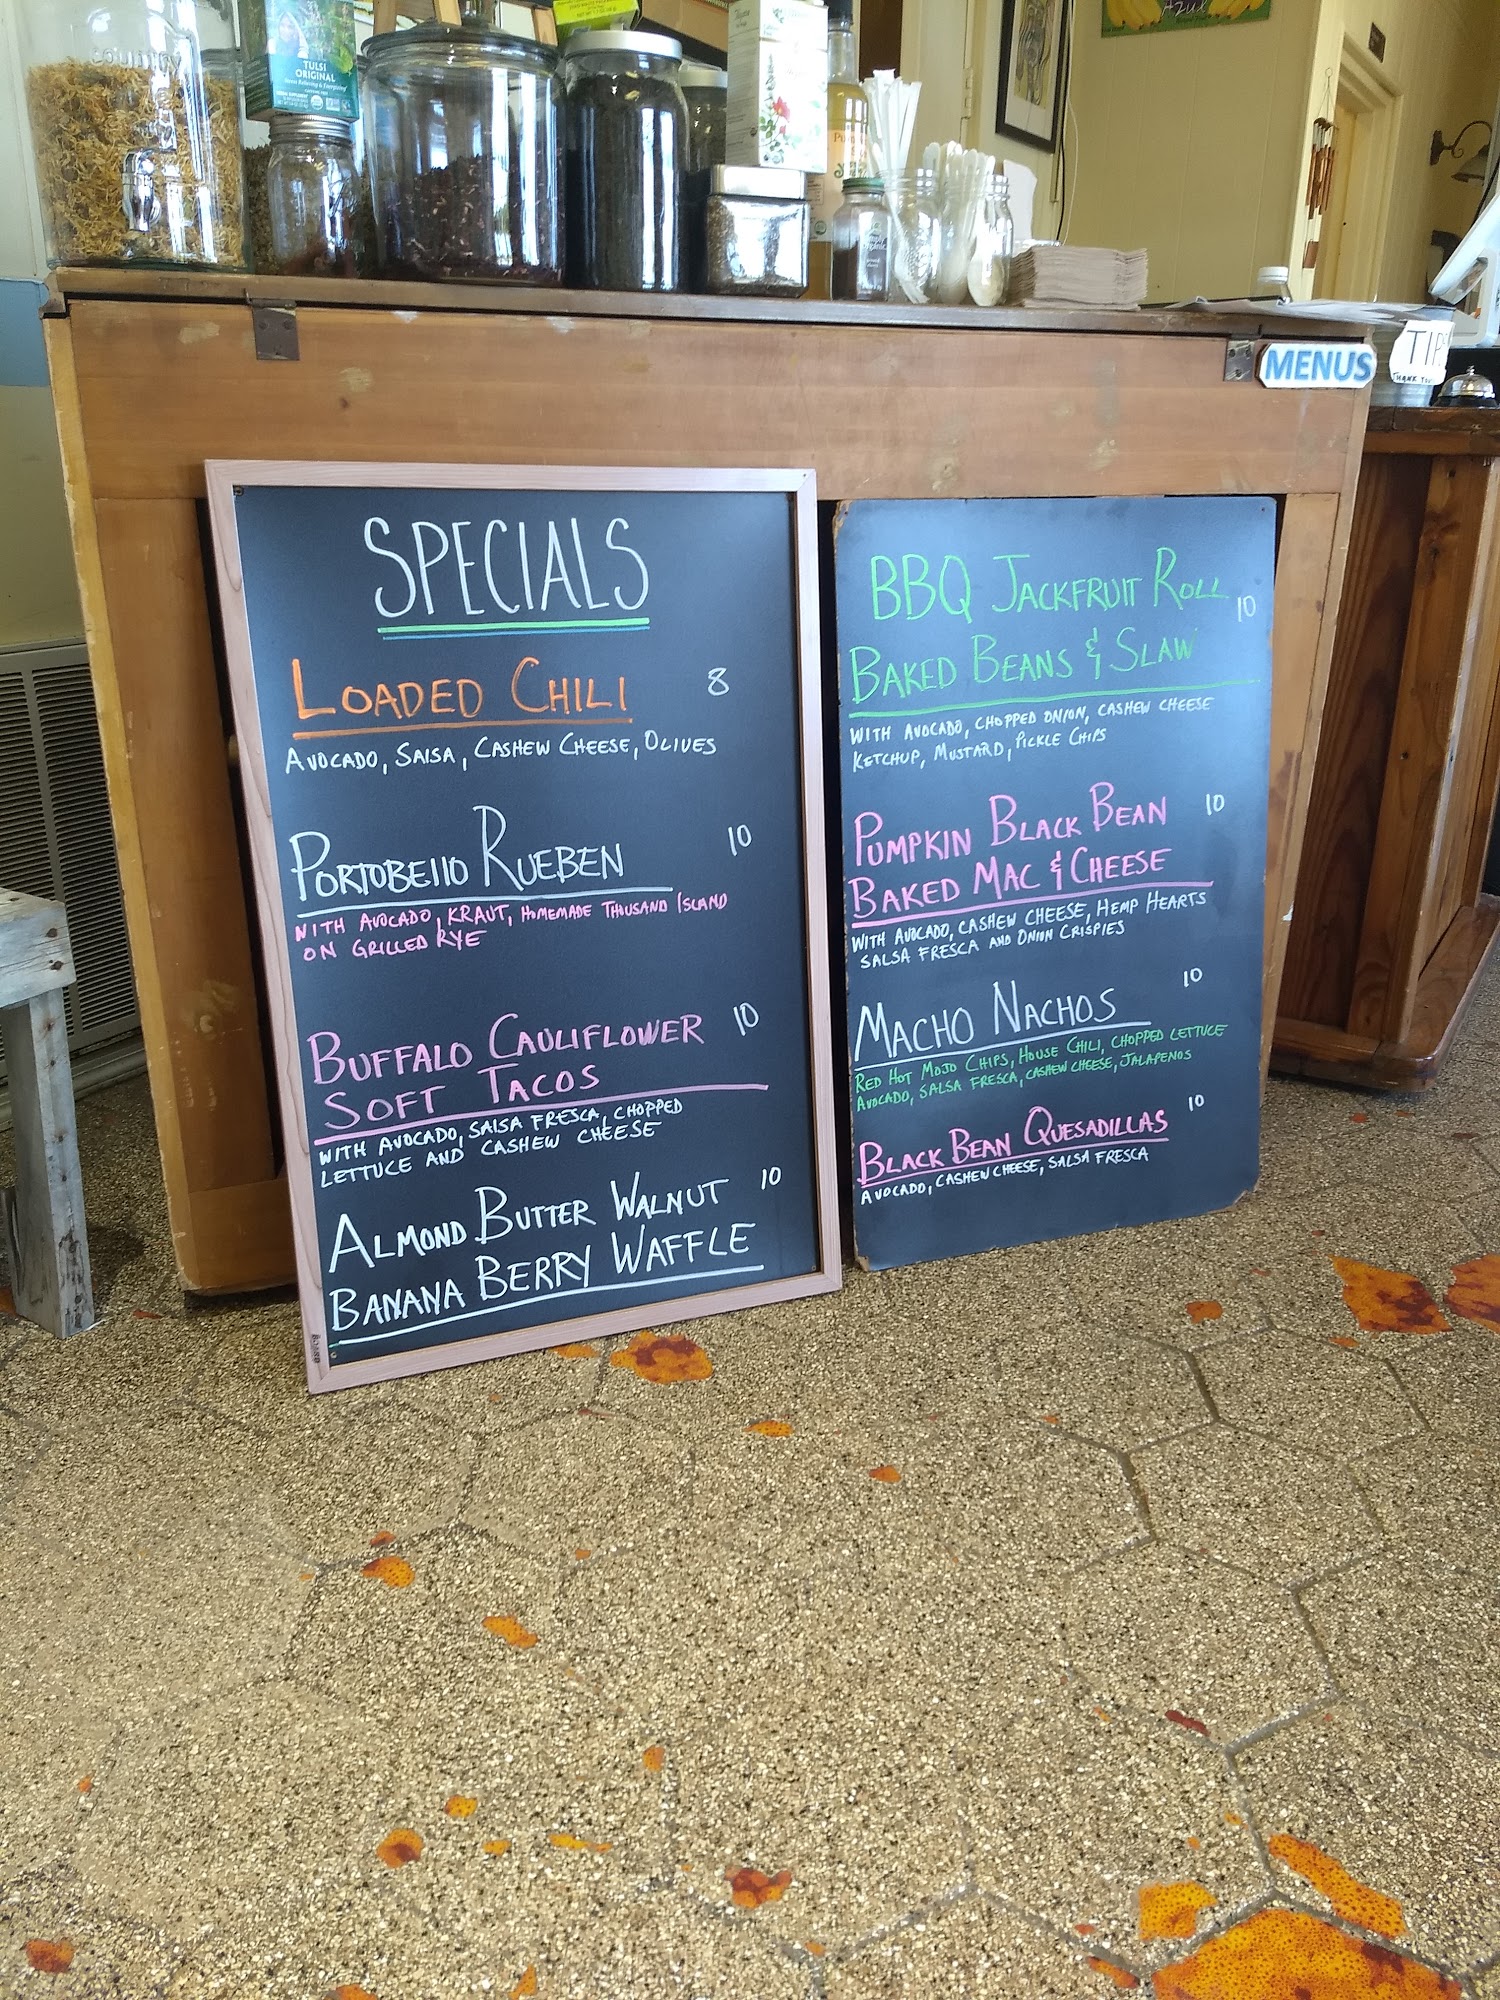 COUNTRY
TULSI
ORIGINAL
Azul
MENUS
TIPS
THANK YOU!
SPECIALS
LOADED CHILI 8
AVOCADO, SALSA, CASHEW CHEESE, OLIVES
PORTOBELLO RUEBEN 10
WITH AVOCADO, KRAUT, HOMEMADE THOUSAND ISLAND
ON GRILLED RYE
BUFFALO CAULIFLOWER 10
SOFT TACOS
WITH AVOCADO, SALSA FRESCA, CHOPPED
LETTUCE AND CASHEW CHEESE
ALMOND BUTTER WALNUT 10
BANANA BERRY WAFFLE
BOARD
BBQ JACKFRUIT ROLL 10
BAKED BEANS & SLAW
WITH AVOCADO, CHOPPED ONION, CASHEW CHEESE
KETCHUP, MUSTARD, PICKLE CHIPS
PUMPKIN BLACK BEAN 10
BAKED MAC & CHEESE
WITH AVOCADO, CASHEW CHEESE, HEMP HEARTS
SALSA FRESCA AND ONION CRISPIES
MACHO NACHOS 10
RED HOT MOJO CHIPS, HOUSE CHILI, CHOPPED LETTUCE
AVOCADO, SALSA FRESCA, CASHEW CHEESE, JALAPENOS
BLACK BEAN QUESADILLAS 10
AVOCADO, CASHEW CHEESE, SALSA FRESCA